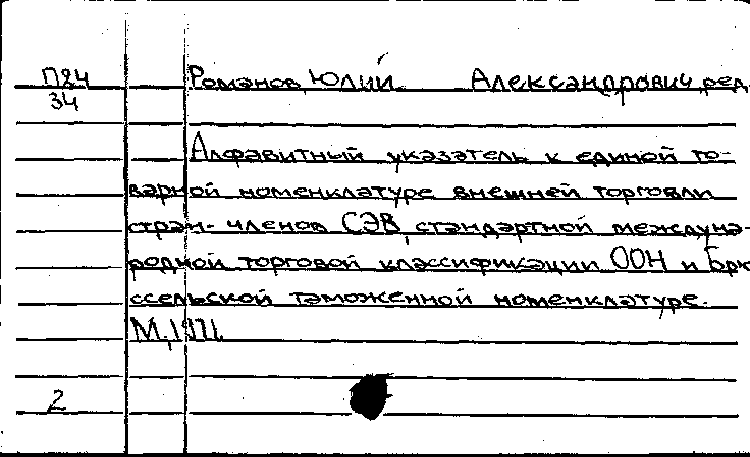 П24 Романов, Юлий Александрович, ред.
34
Алфавитный указатель к единой то-
варной номенклатуре внешней торговли
стран-членов СЭВ, стандартной междуна-
родной торговой классификации ООН и Брю
ссельской таможенной номенклатуре.
М., 1971.
2